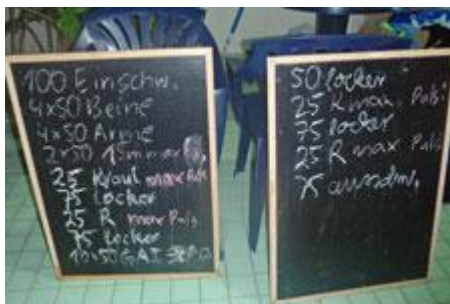 100 Einschw.
4x50 Beine
4x50 Arme
2x50
25 Kraul max Puls
75 locker
25 R max Puls
75 locker
10x50 GA1
50 locker
25 K max. Puls!
75 locker
25 R max Puls
75 ausschw.